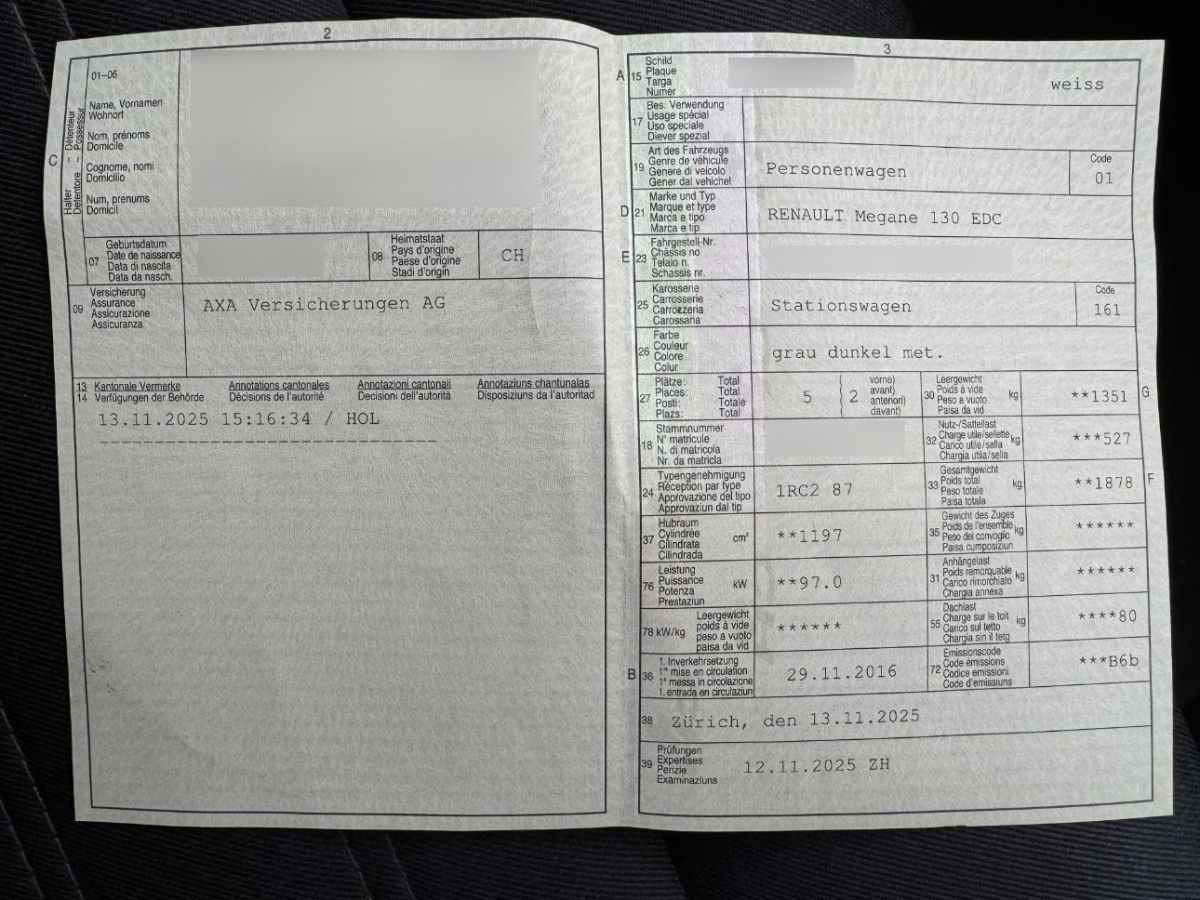 2
01-06
Name, Vornamen
Wohnort
Nom, prénoms
Domicile
Cognome, nomi
Domicilio
Num, prenums
Domicil
C
Halter – Détenteur
Detentore – Possessur
07
Geburtsdatum
Date de naissance
Data di nascita
Data da nasch.
08
Heimatstaat
Pays d'origine
Paese d'origine
Stadi d'origin
CH
09
Versicherung
Assurance
Assicurazione
Assicuranza
AXA Versicherungen AG
13 Kantonale Vermerke Annotations cantonales Annotazioni cantonali Annotaziuns chantunalas
14 Verfügungen der Behörde Décisions de l'autorité Decisioni dell'autorità Disposiziuns da l'autoritad
13.11.2025 15:16:34 / HOL
3
A 15
Schild
Plaque
Targa
Numer
weiss
17
Bes. Verwendung
Usage spécial
Uso speciale
Diever spezial
19
Art des Fahrzeugs
Genre de véhicule
Genere di veicolo
Gener dal vehichel
Personenwagen
Code
01
D 21
Marke und Typ
Marque et type
Marca e tipo
Marca e tip
RENAULT Megane 130 EDC
E 23
Fahrgestell-Nr.
Châssis no
Telaio n.
Schassis nr.
25
Karosserie
Carrosserie
Carrozzeria
Carossaria
Stationswagen
Code
161
26
Farbe
Couleur
Colore
Colur
grau dunkel met.
27
Plätze: Total
Places: Total
Posti: Totale
Plazs: Total
5
2
vorne)
avant)
anteriori)
davant)
30
Leergewicht
Poids à vide
Peso a vuoto
Paisa da vid
kg
**1351
G
18
Stammnummer
N° matricule
N. di matricola
Nr. da matricla
32
Nutz-/Sattellast
Charge utile/sellette
Carico utile/sella
Chargia utila/sella
kg
***527
24
Typengenehmigung
Réception par type
Approvazione del tipo
Approvaziun dal tip
1RC2 87
33
Gesamtgewicht
Poids total
Peso totale
Paisa totala
kg
**1878
F
37
Hubraum
Cylindrée
Cilindrata
Cilindrada
cm³
**1197
35
Gewicht des Zuges
Poids de l'ensemble
Peso del convoglio
Paisa cumposiziun
kg
******
76
Leistung
Puissance
Potenza
Prestaziun
kW
**97.0
31
Anhängelast
Poids remorquable
Carico rimorchiato
Chargia annexa
kg
******
78 kW/kg
Leergewicht
poids à vide
peso a vuoto
paisa da vid
******
55
Dachlast
Charge sur le toit
Carico sul tetto
Chargia sin il tetg
kg
****80
B 36
1. Inverkehrsetzung
1re mise en circulation
1a messa in circolazione
1. entrada en circulaziun
29.11.2016
72
Emissionscode
Code émissions
Codice emissioni
Code d'emissiuns
***B6b
38
Zürich, den 13.11.2025
39
Prüfungen
Expertises
Perizie
Examinaziuns
12.11.2025 ZH